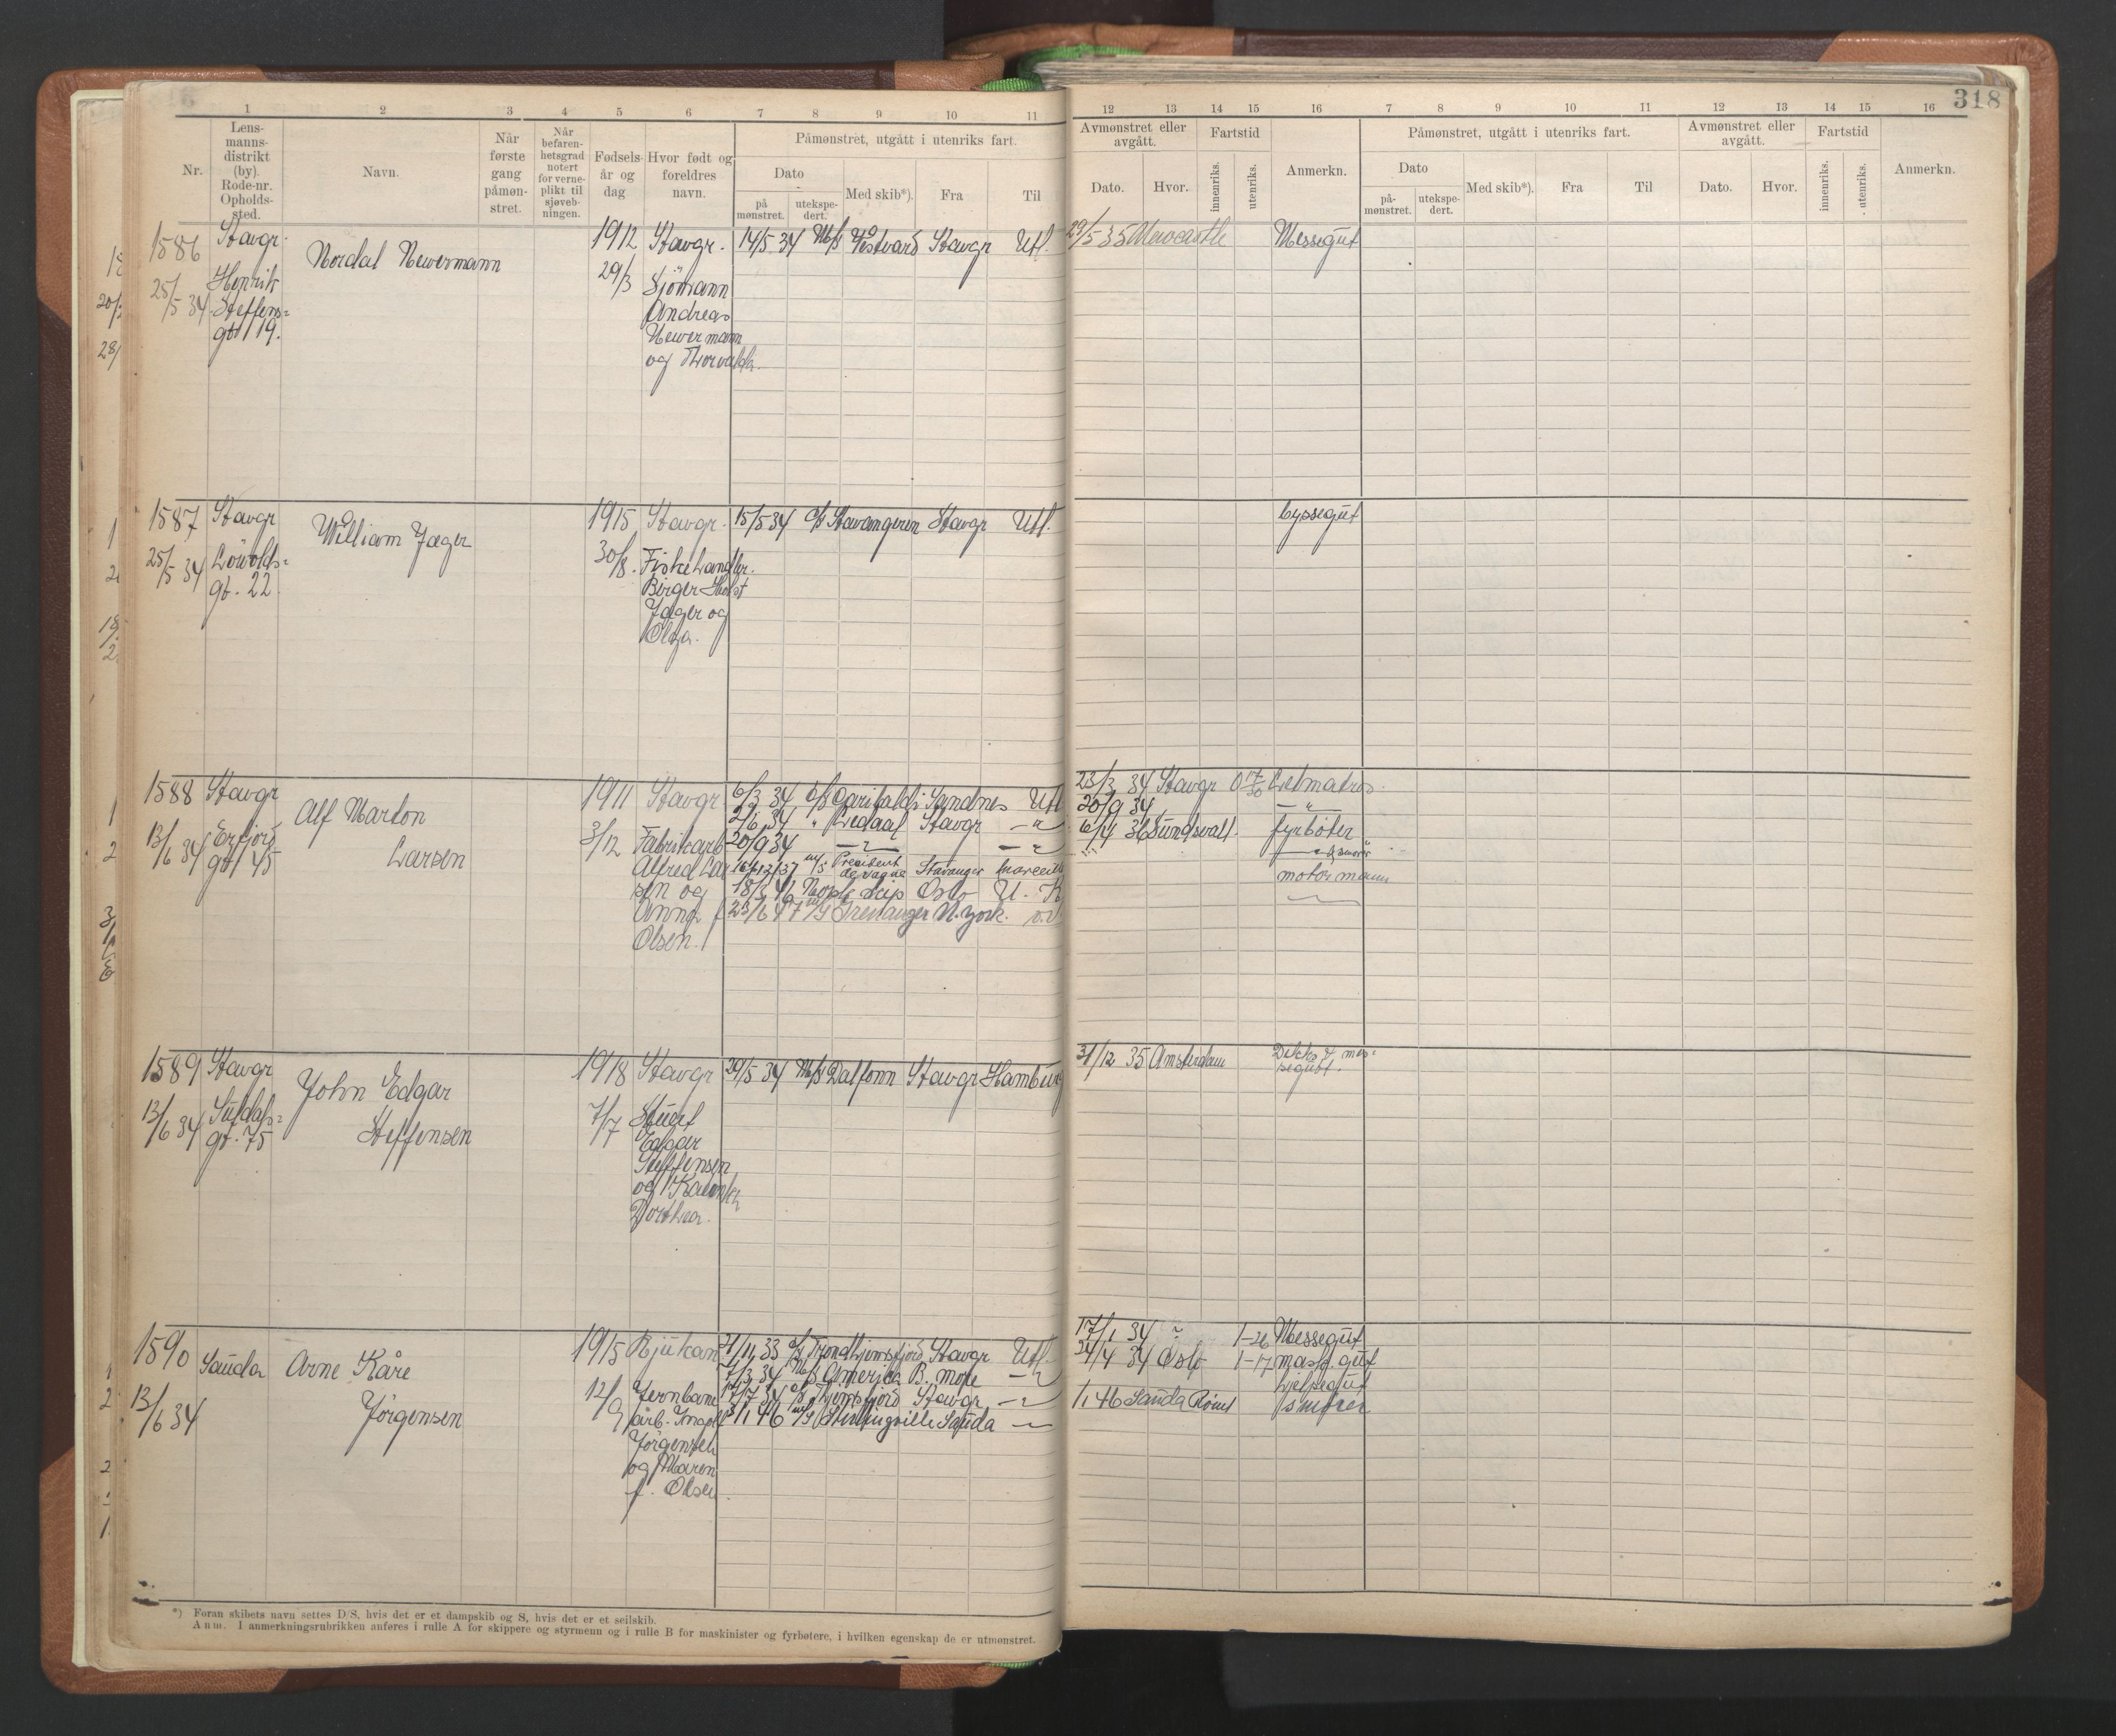 318
1 2 3 4 5 6 7 8 9 10 11 12 13 14 15 16 7 8 9 10 11 12 13 14 15 16
Nr.
Lens-
manns-
distrikt
(by).
Rode-nr.
Opholds-
sted.
Navn.
Når
første
gang
påmøn-
stret.
Når
befaren-
hetsgrad
notert
for verne-
plikt til
sjøveb-
ningen.
Fødsels-
år og
dag
Hvor født og
foreldres
navn.
Påmønstret, utgått i utenriks fart.
Dato
på
mønstret.
utekspe-
dert.
Med skib*).
Fra
Til
Avmønstret eller
avgått.
Dato.
Hvor.
Fartstid
innenriks.
utenriks.
Anmerkn.
Påmønstret, utgått i utenriks fart.
Dato
på-
mønstret.
utekspe-
dert.
Med skib*).
Fra
Til
Avmønstret eller
avgått.
Dato.
Hvor.
Fartstid
innenriks.
utenriks.
Anmerkn.
1586
25/5 34
Stavgr.
Henrik
Steffens=
gt 19.
Nordal Newermann
1912
29/3
Stavgr.
Sjömann
Andreas
Newermann
og Thorvalda.
14/5 34 M/S Vestvard Stavgr Utl.
29/5 35 Newcastle Messegut
1587
25/5 34
Stavgr
Lövolds=
gt. 22
William Jæger
1915
30/8.
Stavgr.
Fiskehandler.
Birger Holst
Jæger og
Olga.
15/5 34 D/S Stavangeren Stavgr Utl.
byssegut
1588
13/6 34
Stavgr
Erfjord
gt 45
Alf Marton
Larsen
1911
3/12
Stavgr
Fabrikarb
Alfred Lar
sen og
Anna f
Olsen.
6/3 34 D/S Garibaldi Sandnes Utl
2/6 34 " Bredaal Stavgr — " —
20/9 34
16/12/37 m/S President de Vogue Stavanger Marceille
18/2 46 Nople Oslo U. K
23/6 47 m/S Grenanger N. York.
23/3 34 Stavgr 0 17/30 Letmatros
20/9 34 — " —
6/4 36 Sundsvall. fyrböter
& smører
motormann
1589
13/6 34
Stavgr
Suldals=
gt. 75
John Edgar
Steffensen
1918
7/7
Stavgr
Stuert
Edgar
Steffensen
og
Dorthea.
29/5 34 M/S Dalfonn Stavgr Hamburg
31/12 35 Amsterdam Dekks & mes=
segutt.
1590
13/6 34
Sauda
Arne Kåre
Jörgensen
1915
12/9
Rjukan
Jernbane
arb. Ingolf
Jörgensen
og Maren
f. Olsen.
21/11 33 D/S Trondhjemsfjord Stavgr Utl.
7/3 34 M/S America B. more — " —
17/7 34 D/S Thjemsfjord Stavgr — " —
3/1 46 m/S Stirlingville Sauda — " —
17/1 34 1-26 Messegut
24/4 34 Oslo 1-17 mask. gut
hjelpegut
/1 46 Sauda Rømt smører
*) Foran skibets navn settes D/S, hvis det er et dampskib og S, hvis det er et seilskib.
Anm. I anmerkningsrubrikken anføres i rulle A for skippere og styrmenn og i rulle B for maskinister og fyrbøtere, i hvilken egenskap de er utmønstret.